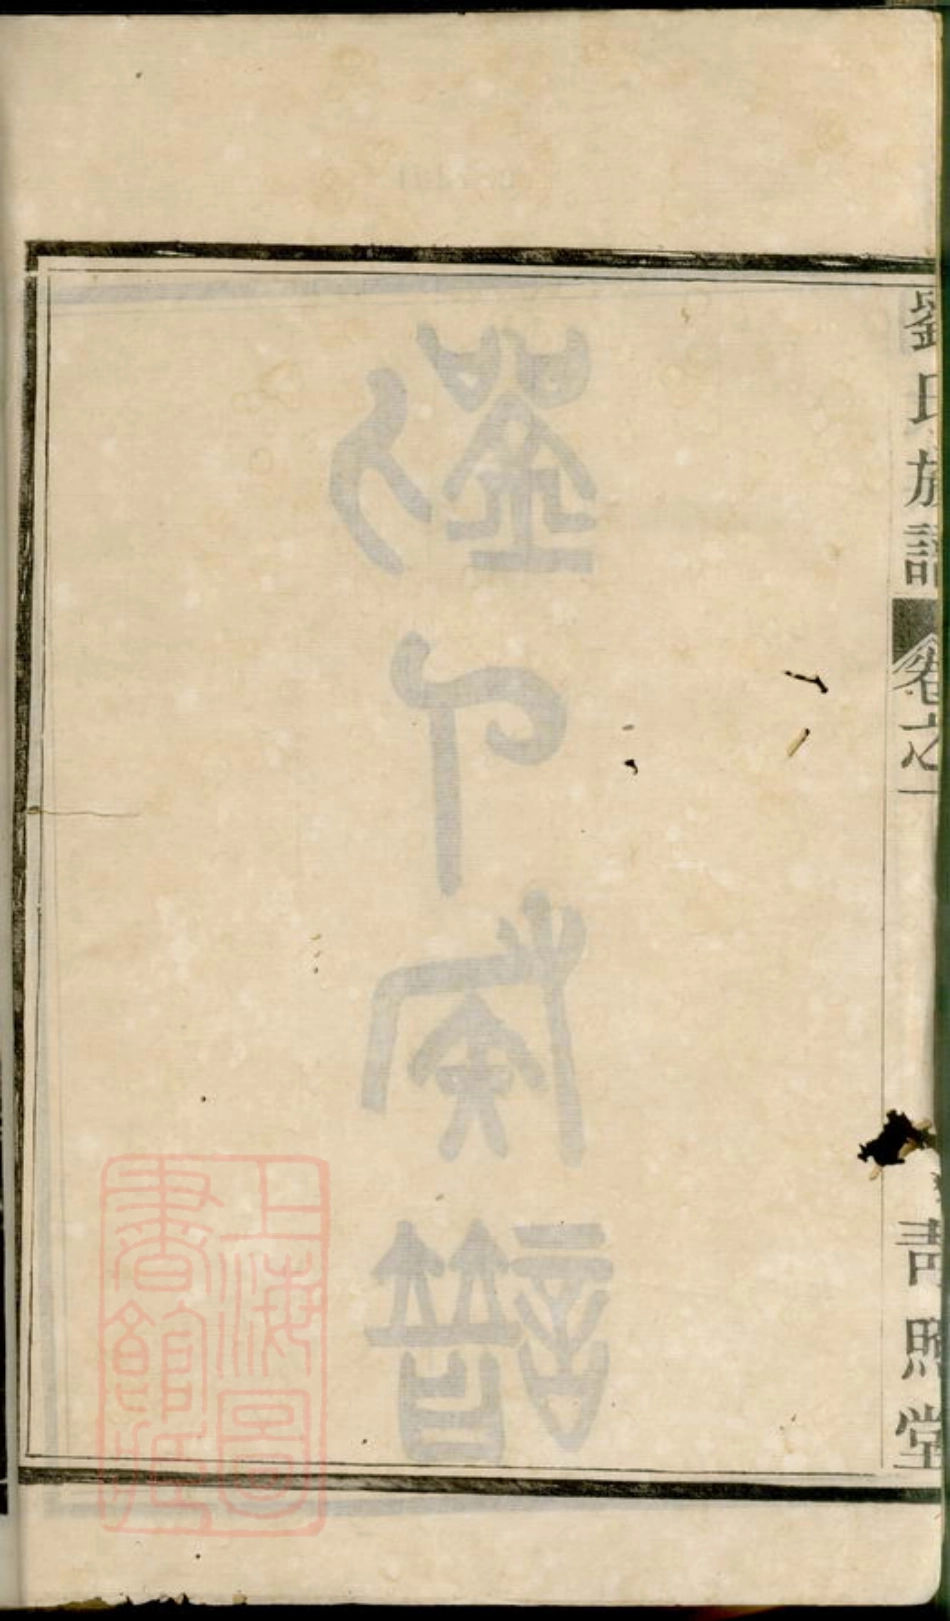 劉氏族譜
卷之一
青照堂
劉氏族譜
上海圖
書館藏